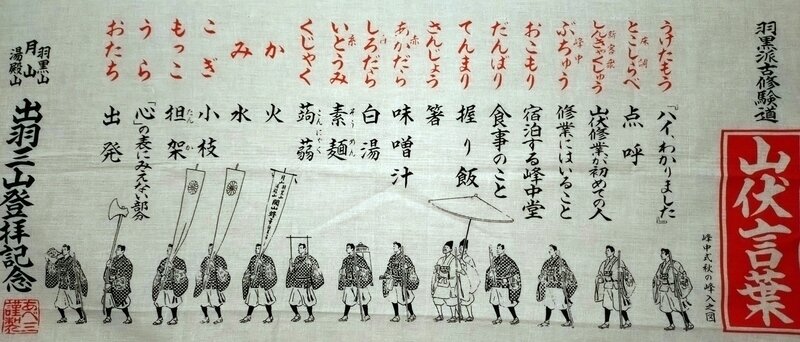 羽黒派古修験道
山伏言葉
峰中式秋の峰入之図
うけたもう
『ハイ、わかりました』
とこしらべ
床調
点呼
しんきゃくしゅう
新客衆
山伏修業が初めての人
ぶちゅう
峰中
修業にはいること
おこもり
宿泊する峰中堂
だんばり
食事のこと
てんまり
握り飯
さんじょう
箸
あかだら
赤
味噌汁
しろだら
白
白湯
いとうみ
糸
素麺
そうめん
くじゃく
蒟蒻
こんにゃく
か
火
み
水
こぎ
小枝
もっこ
担架
たんか
うら
「心」の表にみえない部分
おたち
出発
羽黒山
月山
湯殿山
出羽三山登拝記念
謹製